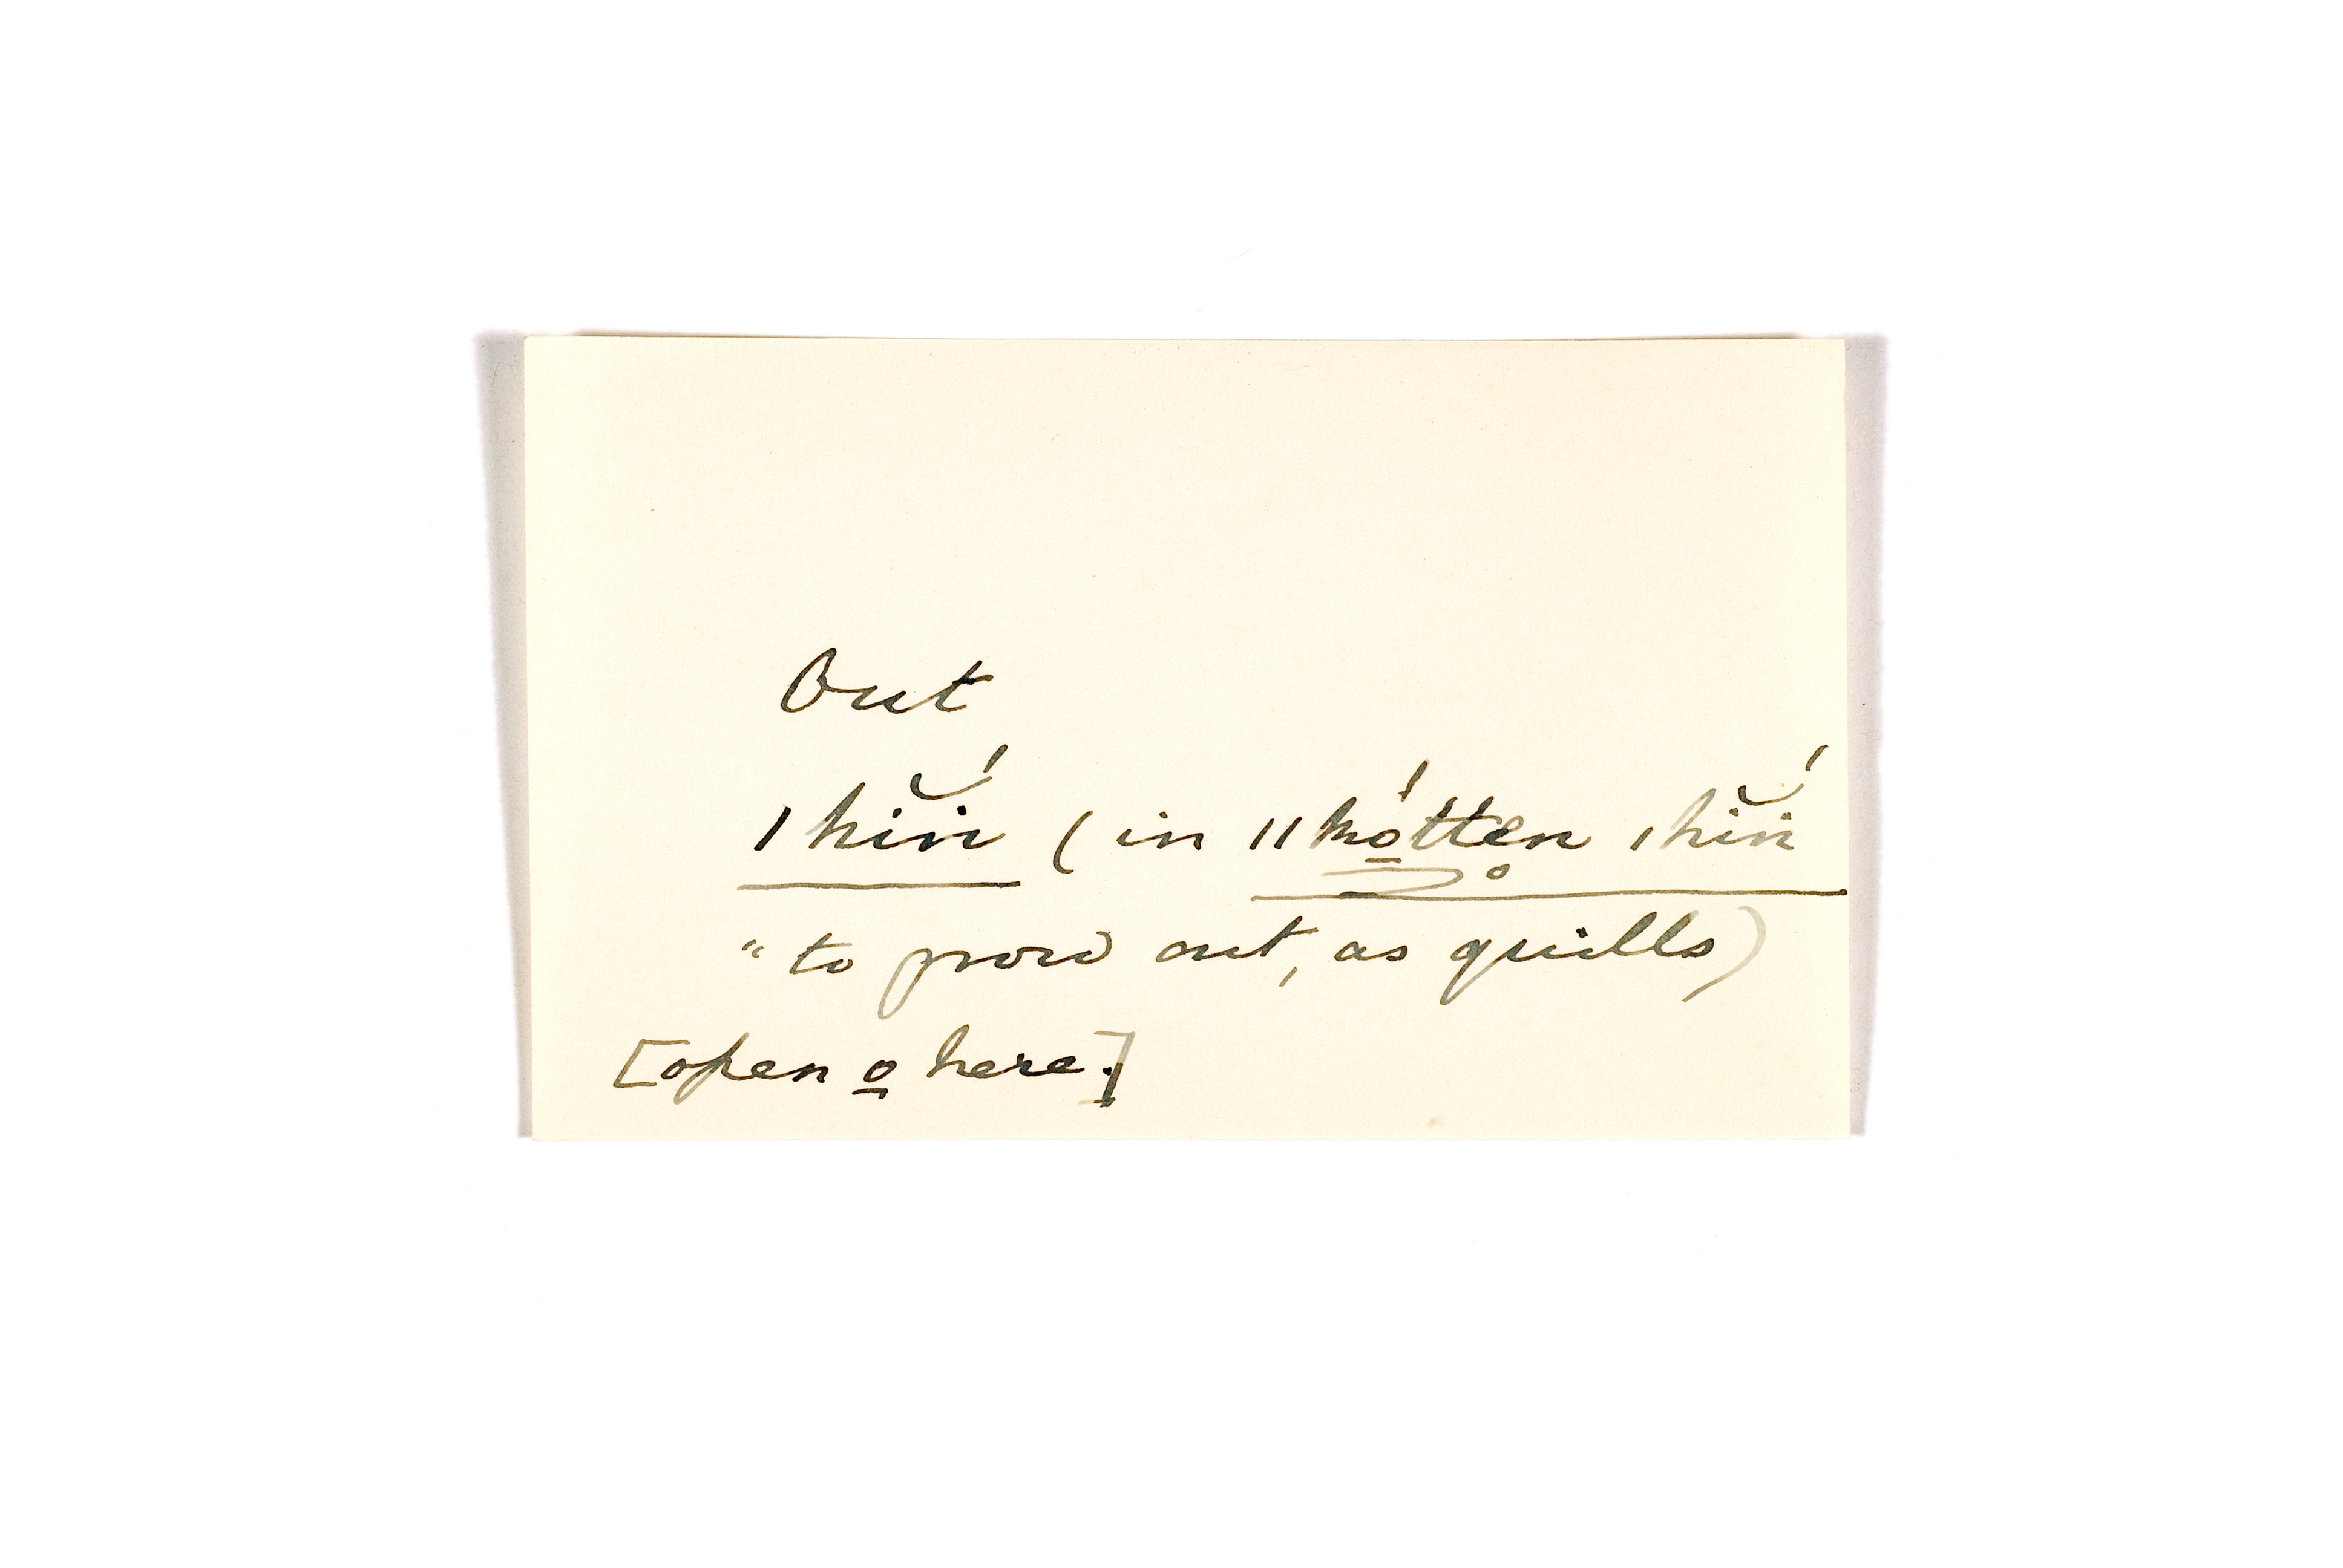 Out
|hĭń (in ||kó̱tten̥ |hĭń
"to grow out, as quills)
[open o̱ here.]